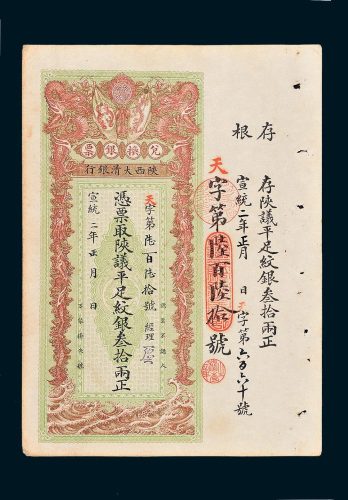 存根
存陝議平足紋銀叁拾兩正
宣統二年正月 日 天字第六百六十號
天字第陸百陸拾號
兌換銀票
陝西大清銀行
認票不認人
天字第陸百陸拾號 經理
憑票取陝議平足紋銀叁拾兩正
宣統二年正月 日